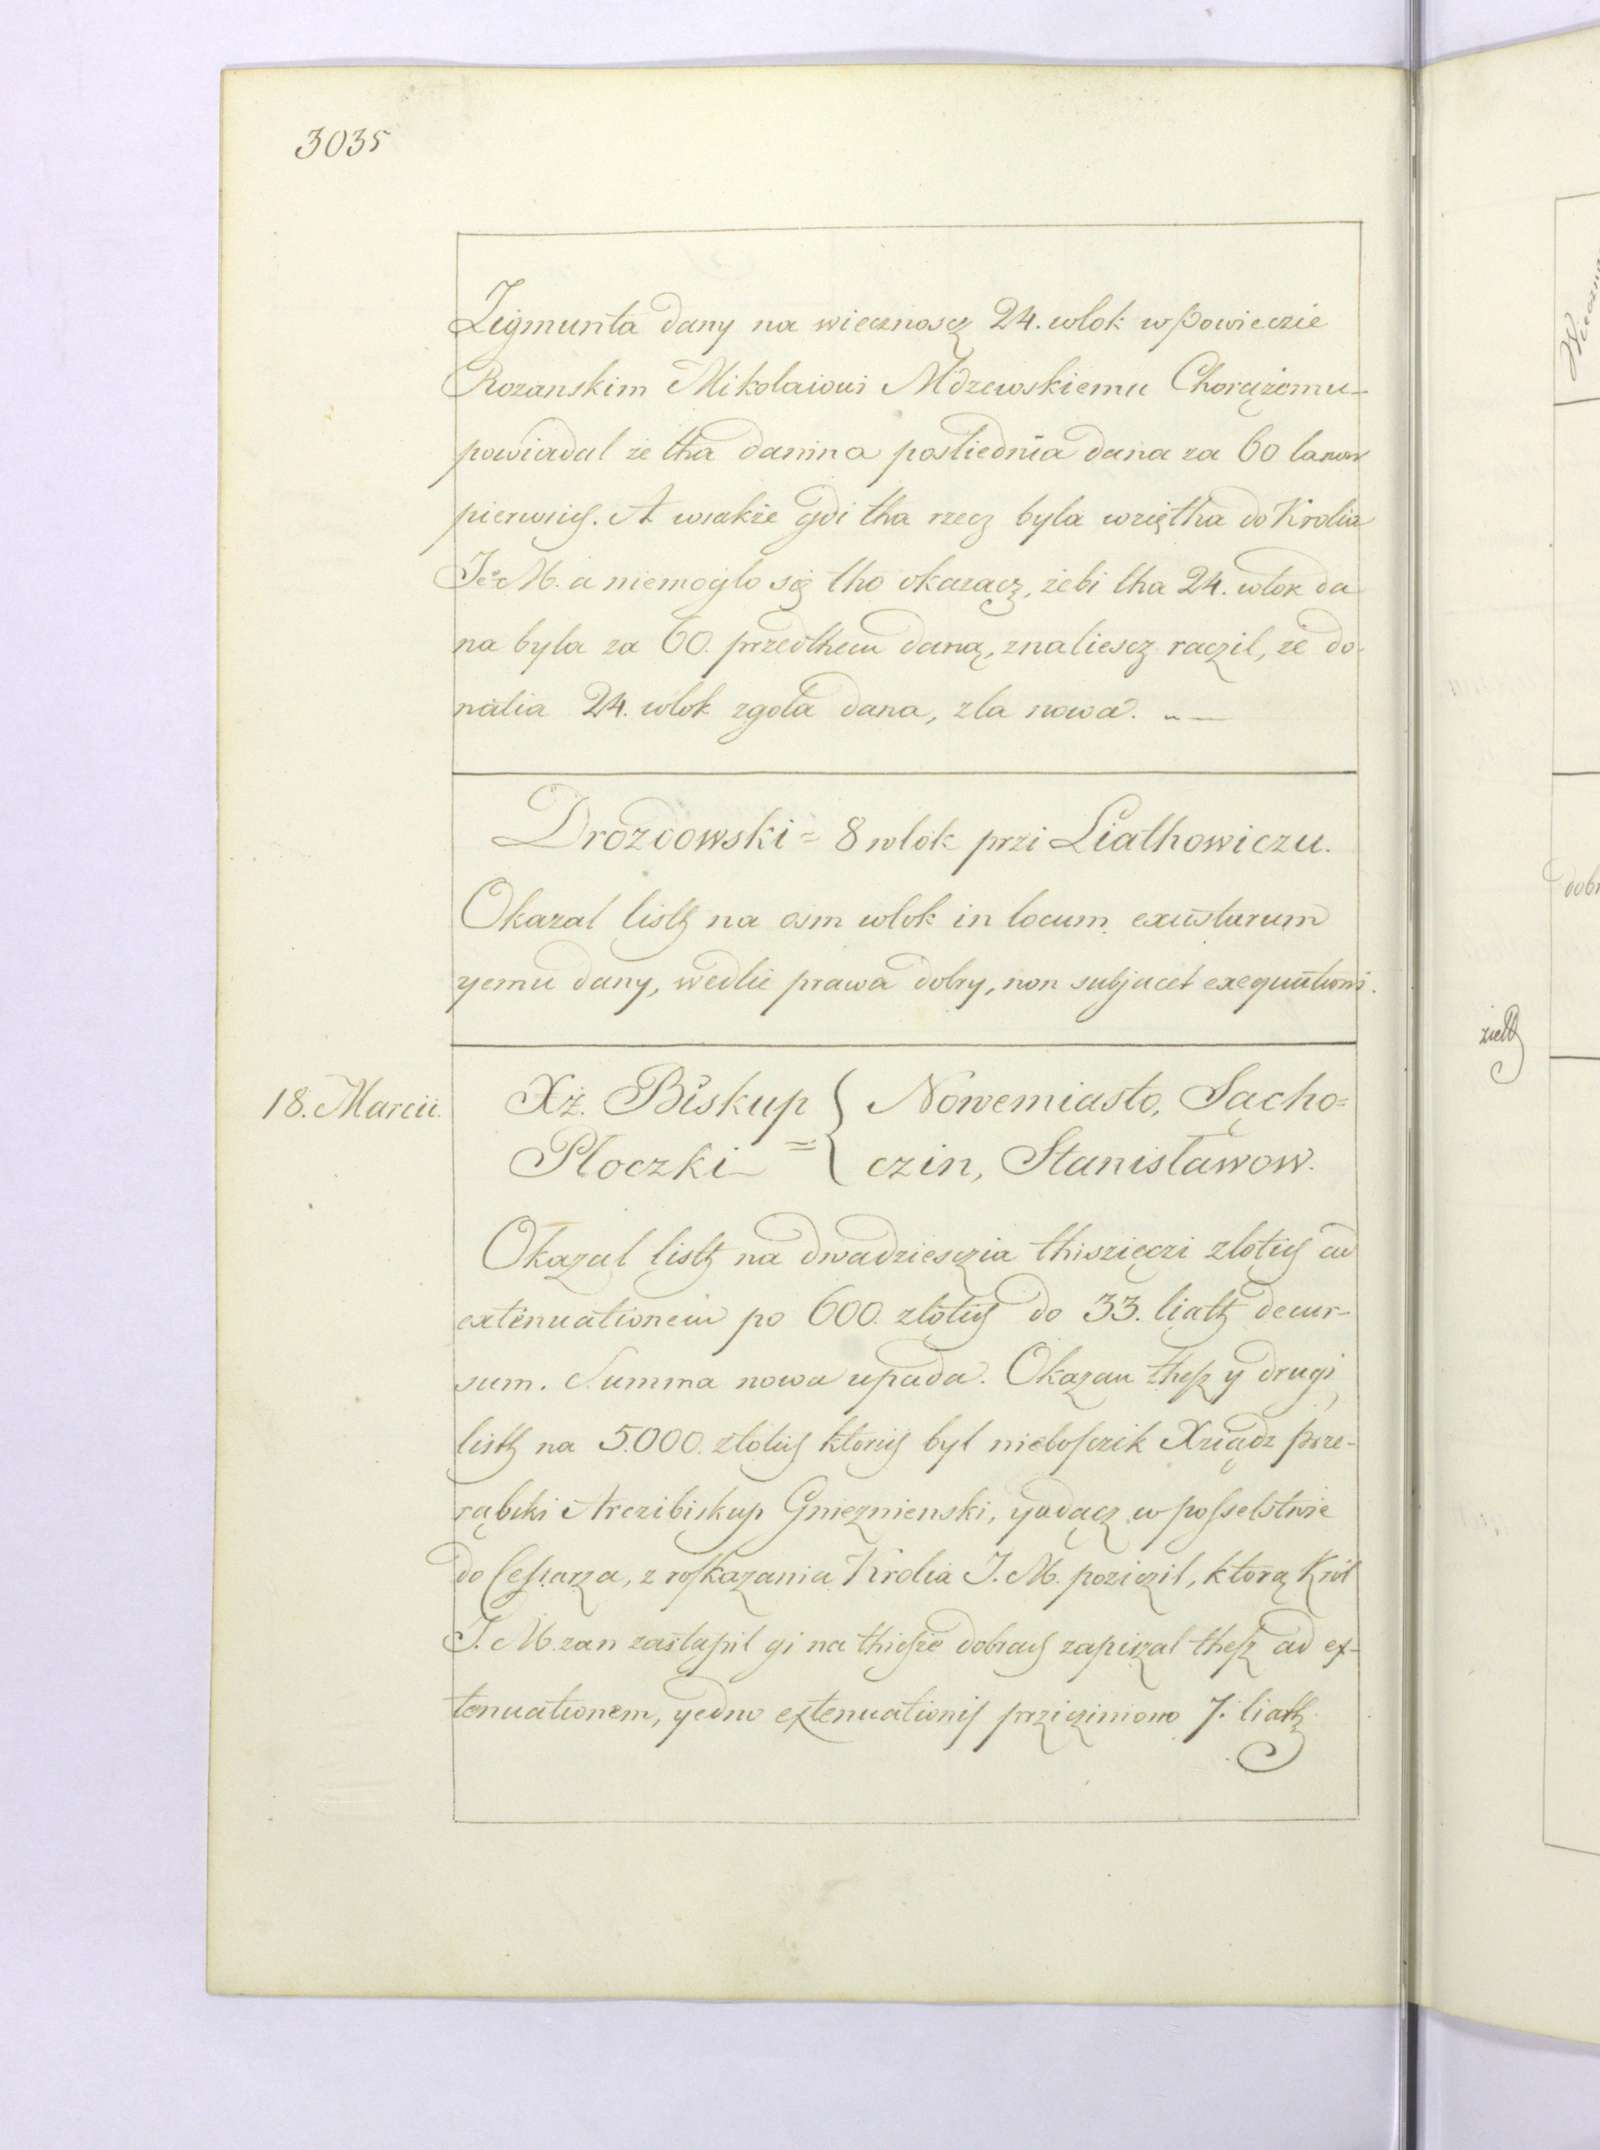 3035
Zigmunta dany na wiecznoscz 24. wlok w powieczie
Rozanskim Mikolaiowi Mdzewskiemu Chorążemu-
powiadal że tha danina posliednia dana za 60 lanow
pierwsich. A wsakże gdi tha rzecz byla wziętha do Krolia
Je° M. a niemoglo się tho okazacz, żebi tha 24. wlok da
na byla za 60. przedthem daną, znaliescz raczil, że do-
natia 24. wlok zgola dana, zla nowa.
Drozdowski = 8 wlok przi Liathowiczu.
Okazal listh na osm wlok in locum exustarum
yemu dany, wedlie prawa dobry, non subjacet exequutioni.
18. Marcii.
Xż. Biskup { Nowemiasto, Sącho=
Ploczki = czin, Stanisławow.
Okazal listh na dwadziesczia thiszięczi zlotich ad
extenuationem po 600. zlotich do 33. liath decur-
sum. Summa nowa upada. Okazan thesz y drugi
listh na 5.000. zlotich ktorich byl niebosczik Xiądz prze-
rąbski Arczibiskup Gnieznienski, yadącz w posselstwie
do Cessarza, z roskazania Krolia J. M. poziczil, ktorą Krol
J. M. zan zastąpil gi na thichże dobrach zapiszal thesz ad ex-
tenuationem, yedno extenuationis prziczimiono 7. liath
zieth
dobr